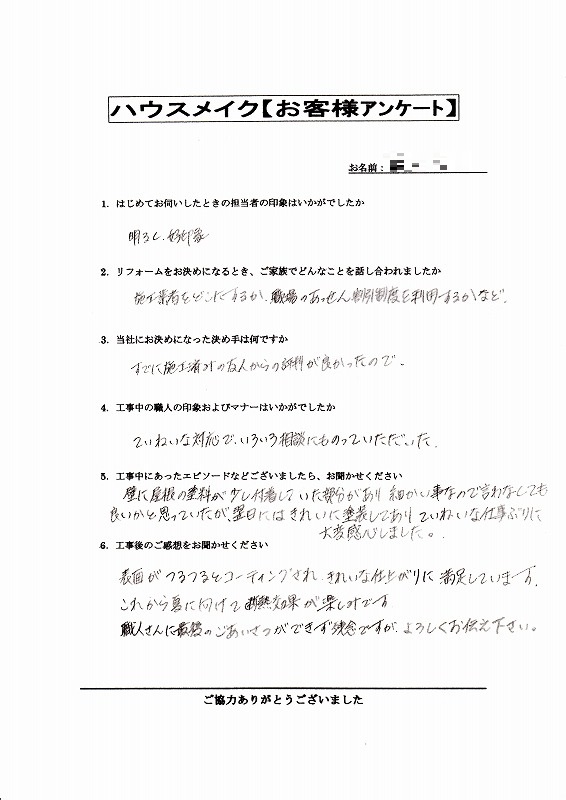 ハウスメイク【お客様アンケート】
お名前：
1. はじめてお伺いしたときの担当者の印象はいかがでしたか
明るく、好印象
2. リフォームをお決めになるとき、ご家族でどんなことを話し合われましたか
施工業者をどこにするか、職場のあっせん割引制度を利用するかなど。
3. 当社にお決めになった決め手は何ですか
すでに施工済みの友人からの評判が良かったので。
4. 工事中の職人の印象およびマナーはいかがでしたか
ていねいな対応で、いろいろ相談にものっていただいた。
5. 工事中にあったエピソードなどございましたら、お聞かせください
壁に屋根の塗料が少し付着していた部分があり 細かい事なので言わなくても
良いかと思っていたが、翌日にはきれいに塗装してあり ていねいな仕事ぶりに
大変感心しました。
6. 工事後のご感想をお聞かせください
表面がつるつるとコーティングされ、きれいな仕上がりに満足しています。
これから夏に向けて断熱効果が楽しみです
職人さんに最後のごあいさつができず残念ですが、よろしくお伝え下さい。
ご協力ありがとうございました